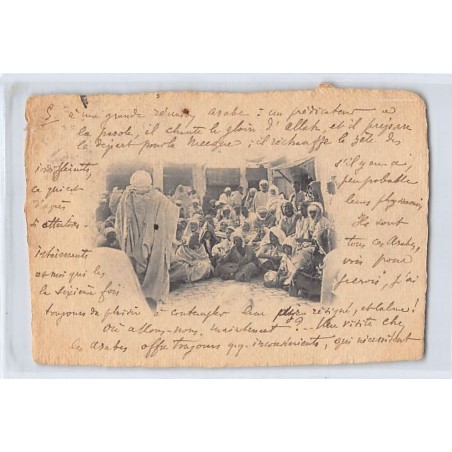 à une grande réunion arabe : un prédicateur a
la parole, il chante la gloire d'Allah, et il prépare
le départ pour la Mecque ; il réchauffe le zèle des
indifférents, s'il y en a,
ce qui est peu probable
d'après leurs physionomies
attentives. Ils sont
tous ces Arabes,
et moi qui les vois pour
la sixième fois j'ai
toujours du plaisir à contempler leur résigné, et calme !
Où allons-nous, maintenant ? Une visite chez
les arabes offre toujours q.q. inconvénients, qui nécessitent